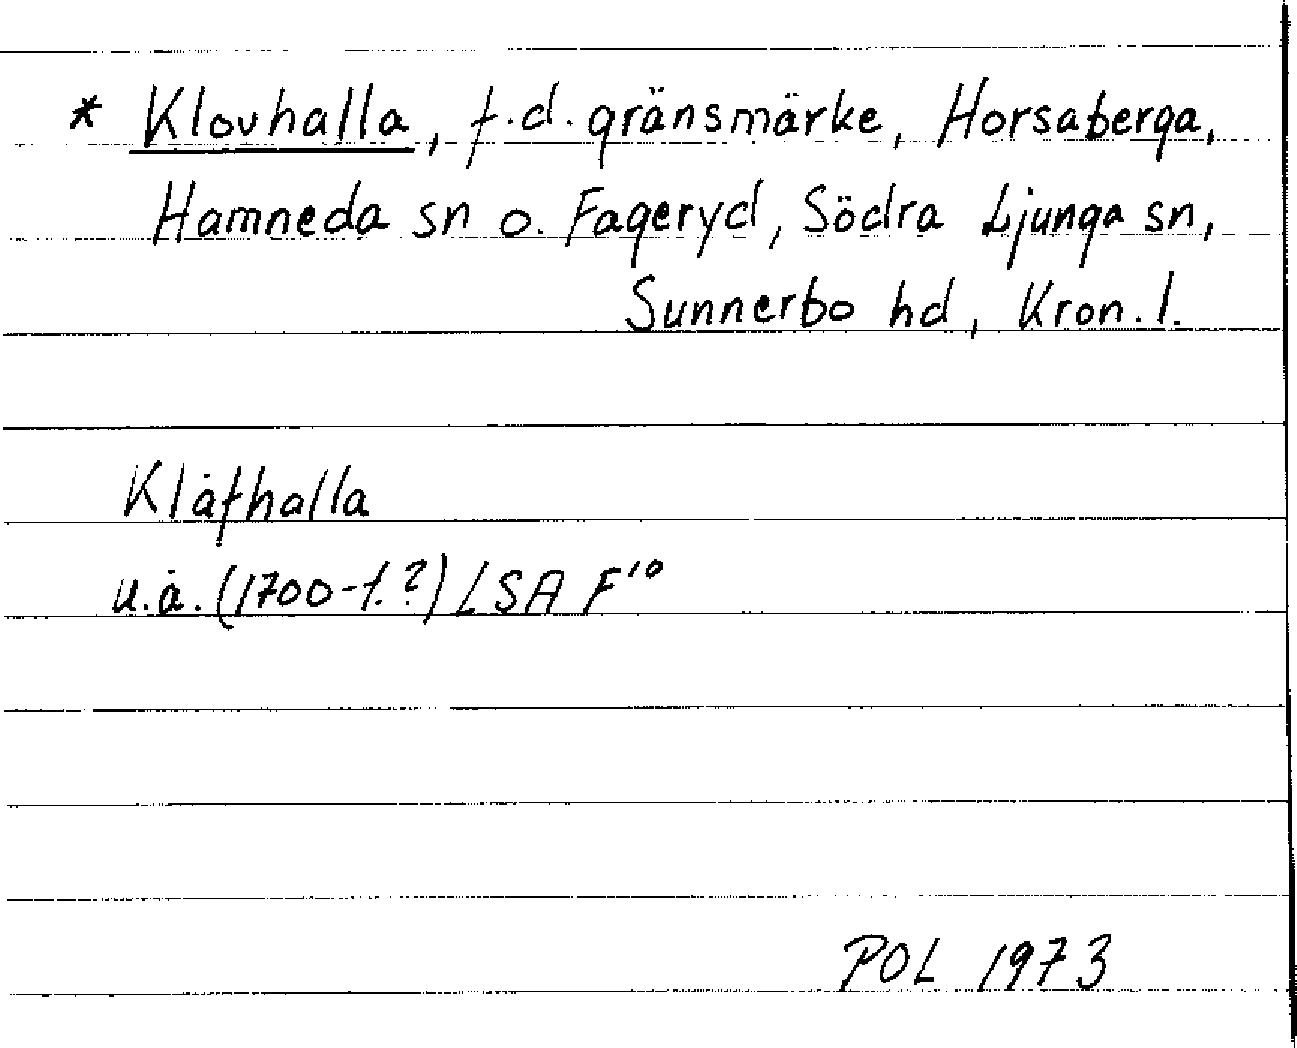 * Klovhalla, f.d. gränsmärke, Horsaberga,
Hamneda sn o. Fageryd, Södra Ljunga sn,
Sunnerbo hd, Kron. l.
Klåfhalla
u.å. (1700-t.?) LSA F¹⁰
POL 1973